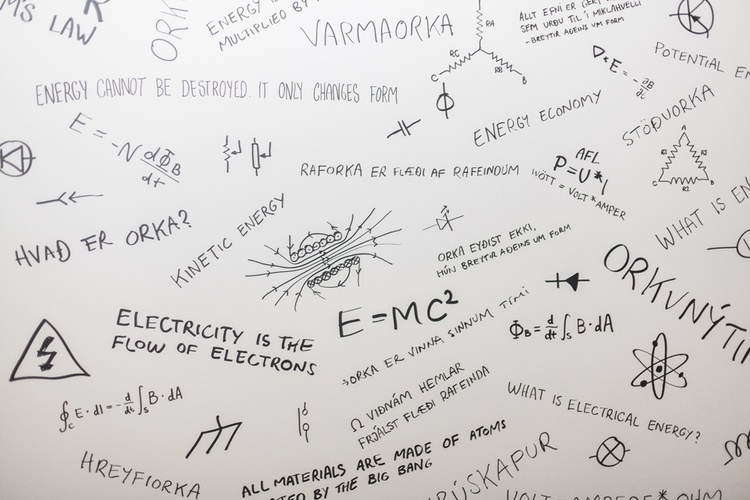 M'S LAW
ENERGY
MULTIPLIED BY
VARMAORKA
RC
RA
RB
C
B
ALLT EFNI ER
SEM URÐU TIL Í MIKLAHVELLI
- BREYTIR AÐEINS UM FORM
POTENTIAL
ENERGY CANNOT BE DESTROYED. IT ONLY CHANGES FORM
ENERGY ECONOMY
∇×E = -∂B/∂t
STÖÐUORKA
E = -N dΦB/dt
RAFORKA ER FLÆÐI AF RAFEINDUM
AFL
P=U*I
WÖTT = VOLT * AMPER
A
R1
R3
C
R2
B
HVAÐ ER ORKA?
KINETIC ENERGY
ORKA EYÐIST EKKI,
HÚN BREYTIR AÐEINS UM FORM
WHAT IS
ORKUNÝTI
ELECTRICITY IS THE
FLOW OF ELECTRONS
E=MC²
ORKA ER VINNA SINNUM TÍMI
ΦB = d/dt ∫S B·dA
∮C E·dl = -d/dt ∫S B·dA
Ω VIÐNÁM HEMLAR
FRJÁLST FLÆÐI RAFEINDA
WHAT IS ELECTRICAL ENERGY?
HREYFIORKA
ALL MATERIALS ARE MADE OF ATOMS
BY THE BIG BANG
RÚSKAPUR